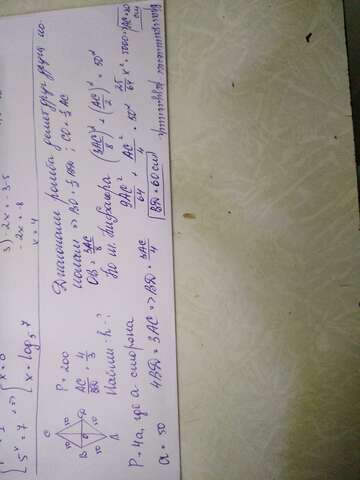 3) -2x = -3-5
-2x = -8
x = 4
5ˣ = 7
x = log₅7
C
50
50
B
O
D
50
50
A
P = 200
AC/BD = 4/3
Найти: h - ?
P = 4a, где a - сторона
a = 50
4BD = 3AC => BD = 3AC/4
Диагонали ромба делят друг друга по-
полам => BO = ½ BD; CO = ½ AC
OB = 3AC/8
По т. Пифагора (3AC/8)² + (AC/2)² = 50²
9AC²/64 + AC²/4 = 50²
25/64 x² = 2500
AC = 80 см
BD = 60 см